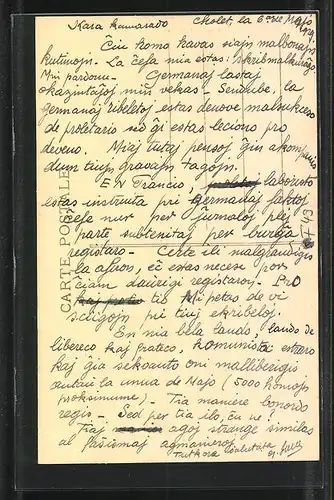 Kara kamarado Cholet, la 6an de Majo
Ĉiu homo havas siajn malbonajn
kutimojn. La ĉefa mia estas: skribmalkuraĝo.
Mi pardonu. Germanaj lastaj
okazintaĵoj min vekas. Sendube, la
germanaj ribeletoj estas denove malsukceso
de proletario sed ĝi estas leciono por
deveno. Miaj tutaj pensoj ĝin akompanis
dum tiuj gravaj tagoj.
En Francio, laboristo
estas instruita pri germanaj faktoj
ĉefe nur per ĵurnaloj plej
parte subtenitaj per burĝa
registaro. Certe ili malgrandigis
la aferon, ĉe estas necese por
ĉiam daŭrigi registaron. Pro
tio mi petas de vi
sciigojn pri tiuj ekribeloj.
En nia bela lando, lando de
libereco kaj frateco, komunista
kaj ĝia sekvanto oni malliberigis
antaŭ la unua de Majo (5000 homojn
proksimume). Tia maniere bonordo
regis. Sed per tia ilo, ĉu ne?
Tiaj agoj strange similas
al faŝismaj agmanieroj.
Tutkora Saluta
CARTE POSTALE